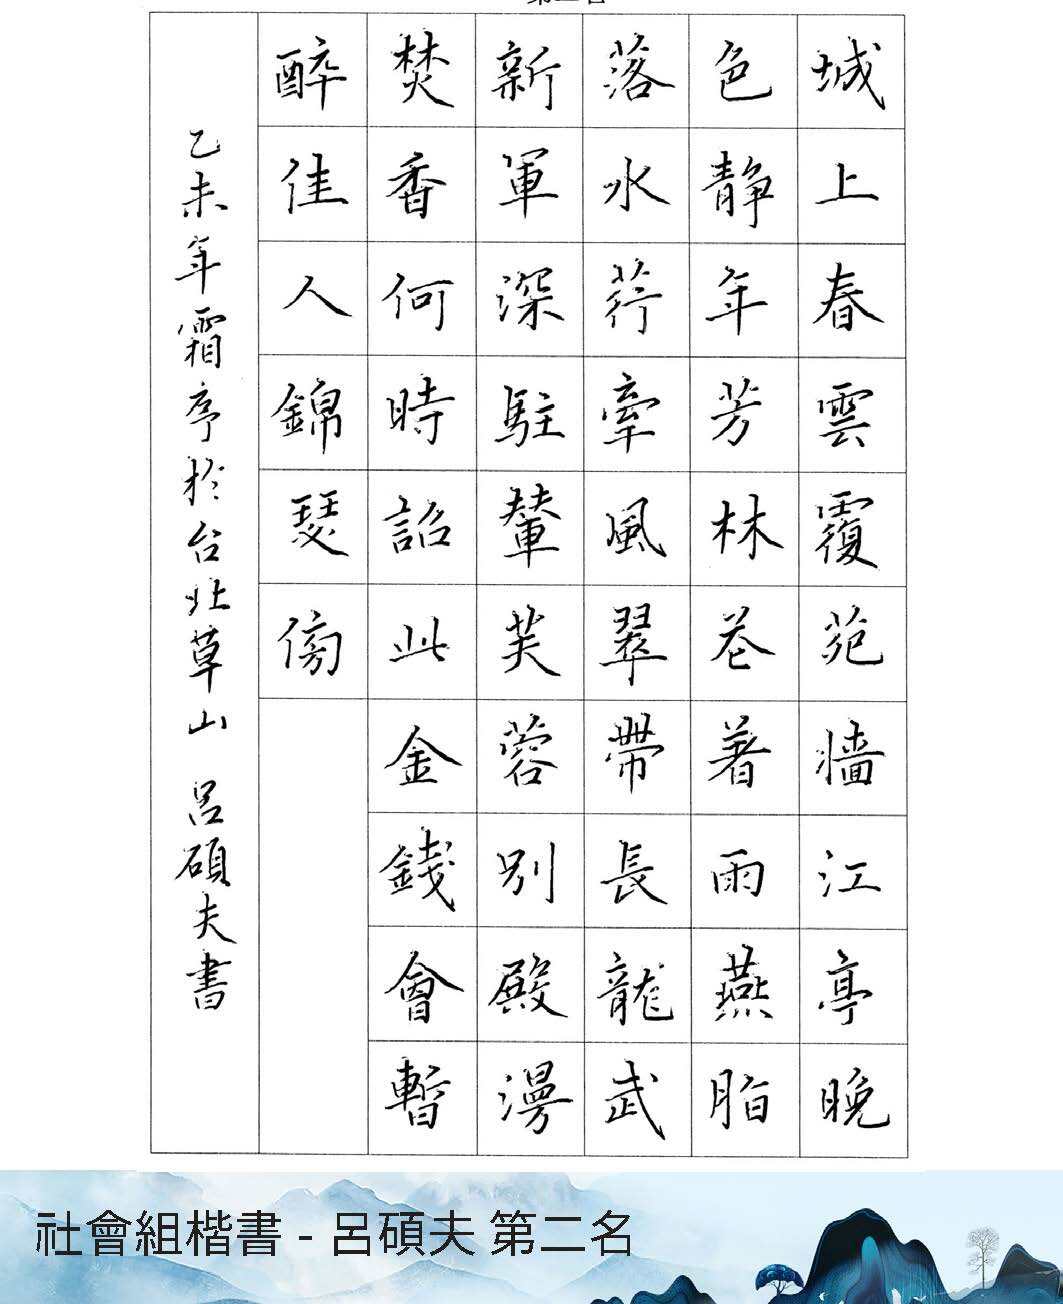 城上春雲覆苑牆江亭晚
色靜年芳林花著雨燕脂
落水荇牽風翠帶長龍武
新軍深駐輦芙蓉別殿漫
焚香何時詔此金錢會暫
醉佳人錦瑟傍
乙未年霜序於台北草山 呂碩夫書
社會組楷書 - 呂碩夫 第二名